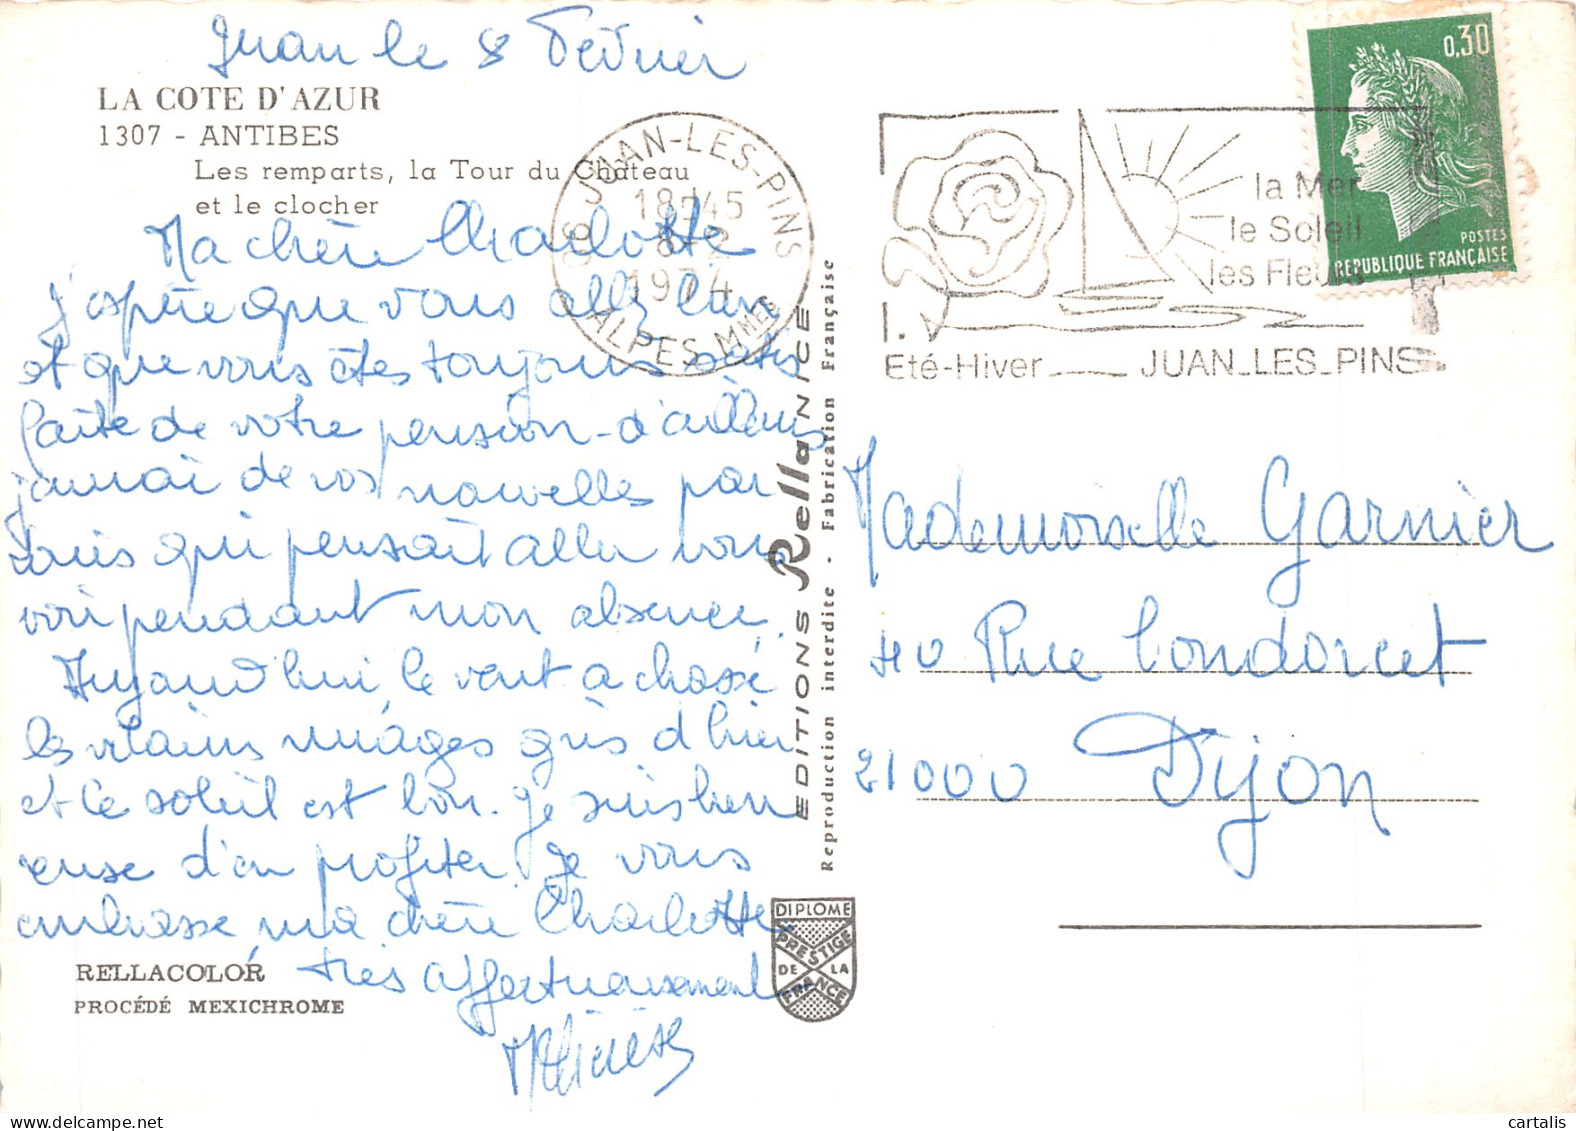 Juan le 8 Février
LA COTE D'AZUR
1307 - ANTIBES
Les remparts, la Tour du Château
et le clocher
Ma chère Charlotte
j'espère que vous allez bien
et que vous êtes toujours satis
faite de votre pension - d'ailleurs
j'aurai de vos nouvelles par
qui pensait aller vous
voir pendant mon absence.
Aujourd'hui, le vent a chassé
les vilains nuages gris d'hier
et le soleil est bon. Je suis heu
reuse d'en profiter. Je vous
embrasse ma chère Charlotte
très affectueusement
RELLACOLOR
PROCÉDÉ MEXICHROME
06 JUAN-LES-PINS
18H45
8-2
1974
ALPES MMES
EDITIONS Rella NICE
Reproduction interdite - Fabrication Française
DIPLOME
PRESTIGE
DE LA
FRANCE
la Mer
le Soleil
les Fleurs
Eté-Hiver JUAN_LES_PINS
0,30
POSTES
REPUBLIQUE FRANÇAISE
Mademoiselle Garnier
40 Rue Condorcet
21000 Dijon
cartalis